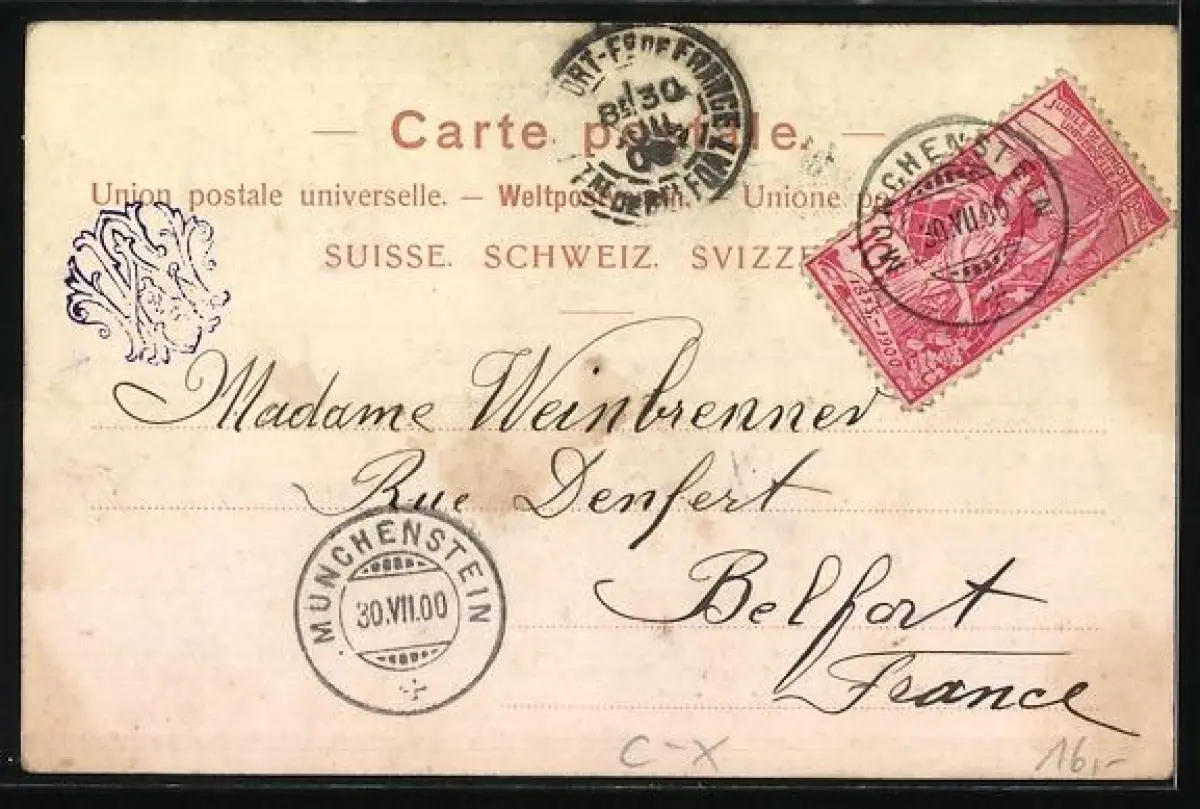 Carte postale.
Union postale universelle. — Weltpostverein. — Unione po
SUISSE. SCHWEIZ. SVIZZE
ORT-Fg DE FRANCE
8E 30
JUIL
MÜNCHENSTEIN
30.VII.00
1875-1900
Madame Weinbrenner
Rue Denfert
Belfort
France
MÜNCHENSTEIN
30.VII.00
C-X
16,-